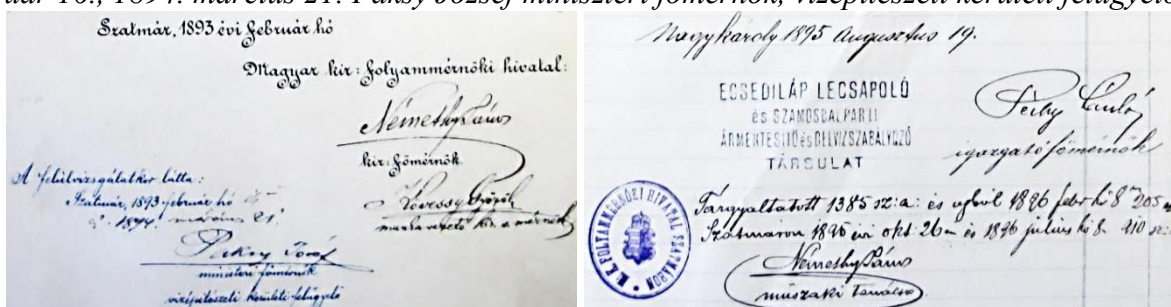 1894. március 21. Paksy József miniszteri főmérnök, vízépítészeti kerületi felügyelő
Szatmár, 1893 évi február hó
Magyar kir: folyammérnöki hivatal:
Némethy János
kir: főmérnök
Kövessy Győző
munkavezető kir. s. mérnök
A felülvizsgálatkor látta:
Szatmár, 1893 február hó
1894. március 21.
Paksy József
miniszteri főmérnök
vízépítészeti kerületi felügyelő
Nagykároly 1895 augusztus 19.
ECSEDILÁP LECSAPOLÓ
és SZAMOSBALPARTI
ÁRMENTESITŐ és BELVIZSZABÁLYOZÓ
TÁRSULAT
Péchy László
igazgató főmérnök
Tárgyaltatott 1385 sz: a: és ugból 1896 febr hó 8 205
Szatmáron 1896 évi okt. 26 és 1896 július hó 8 910 sz:
Némethy János
műszaki tanácsos
M. K. FOLYAMMÉRNÖKI HIVATAL SZATMÁRON